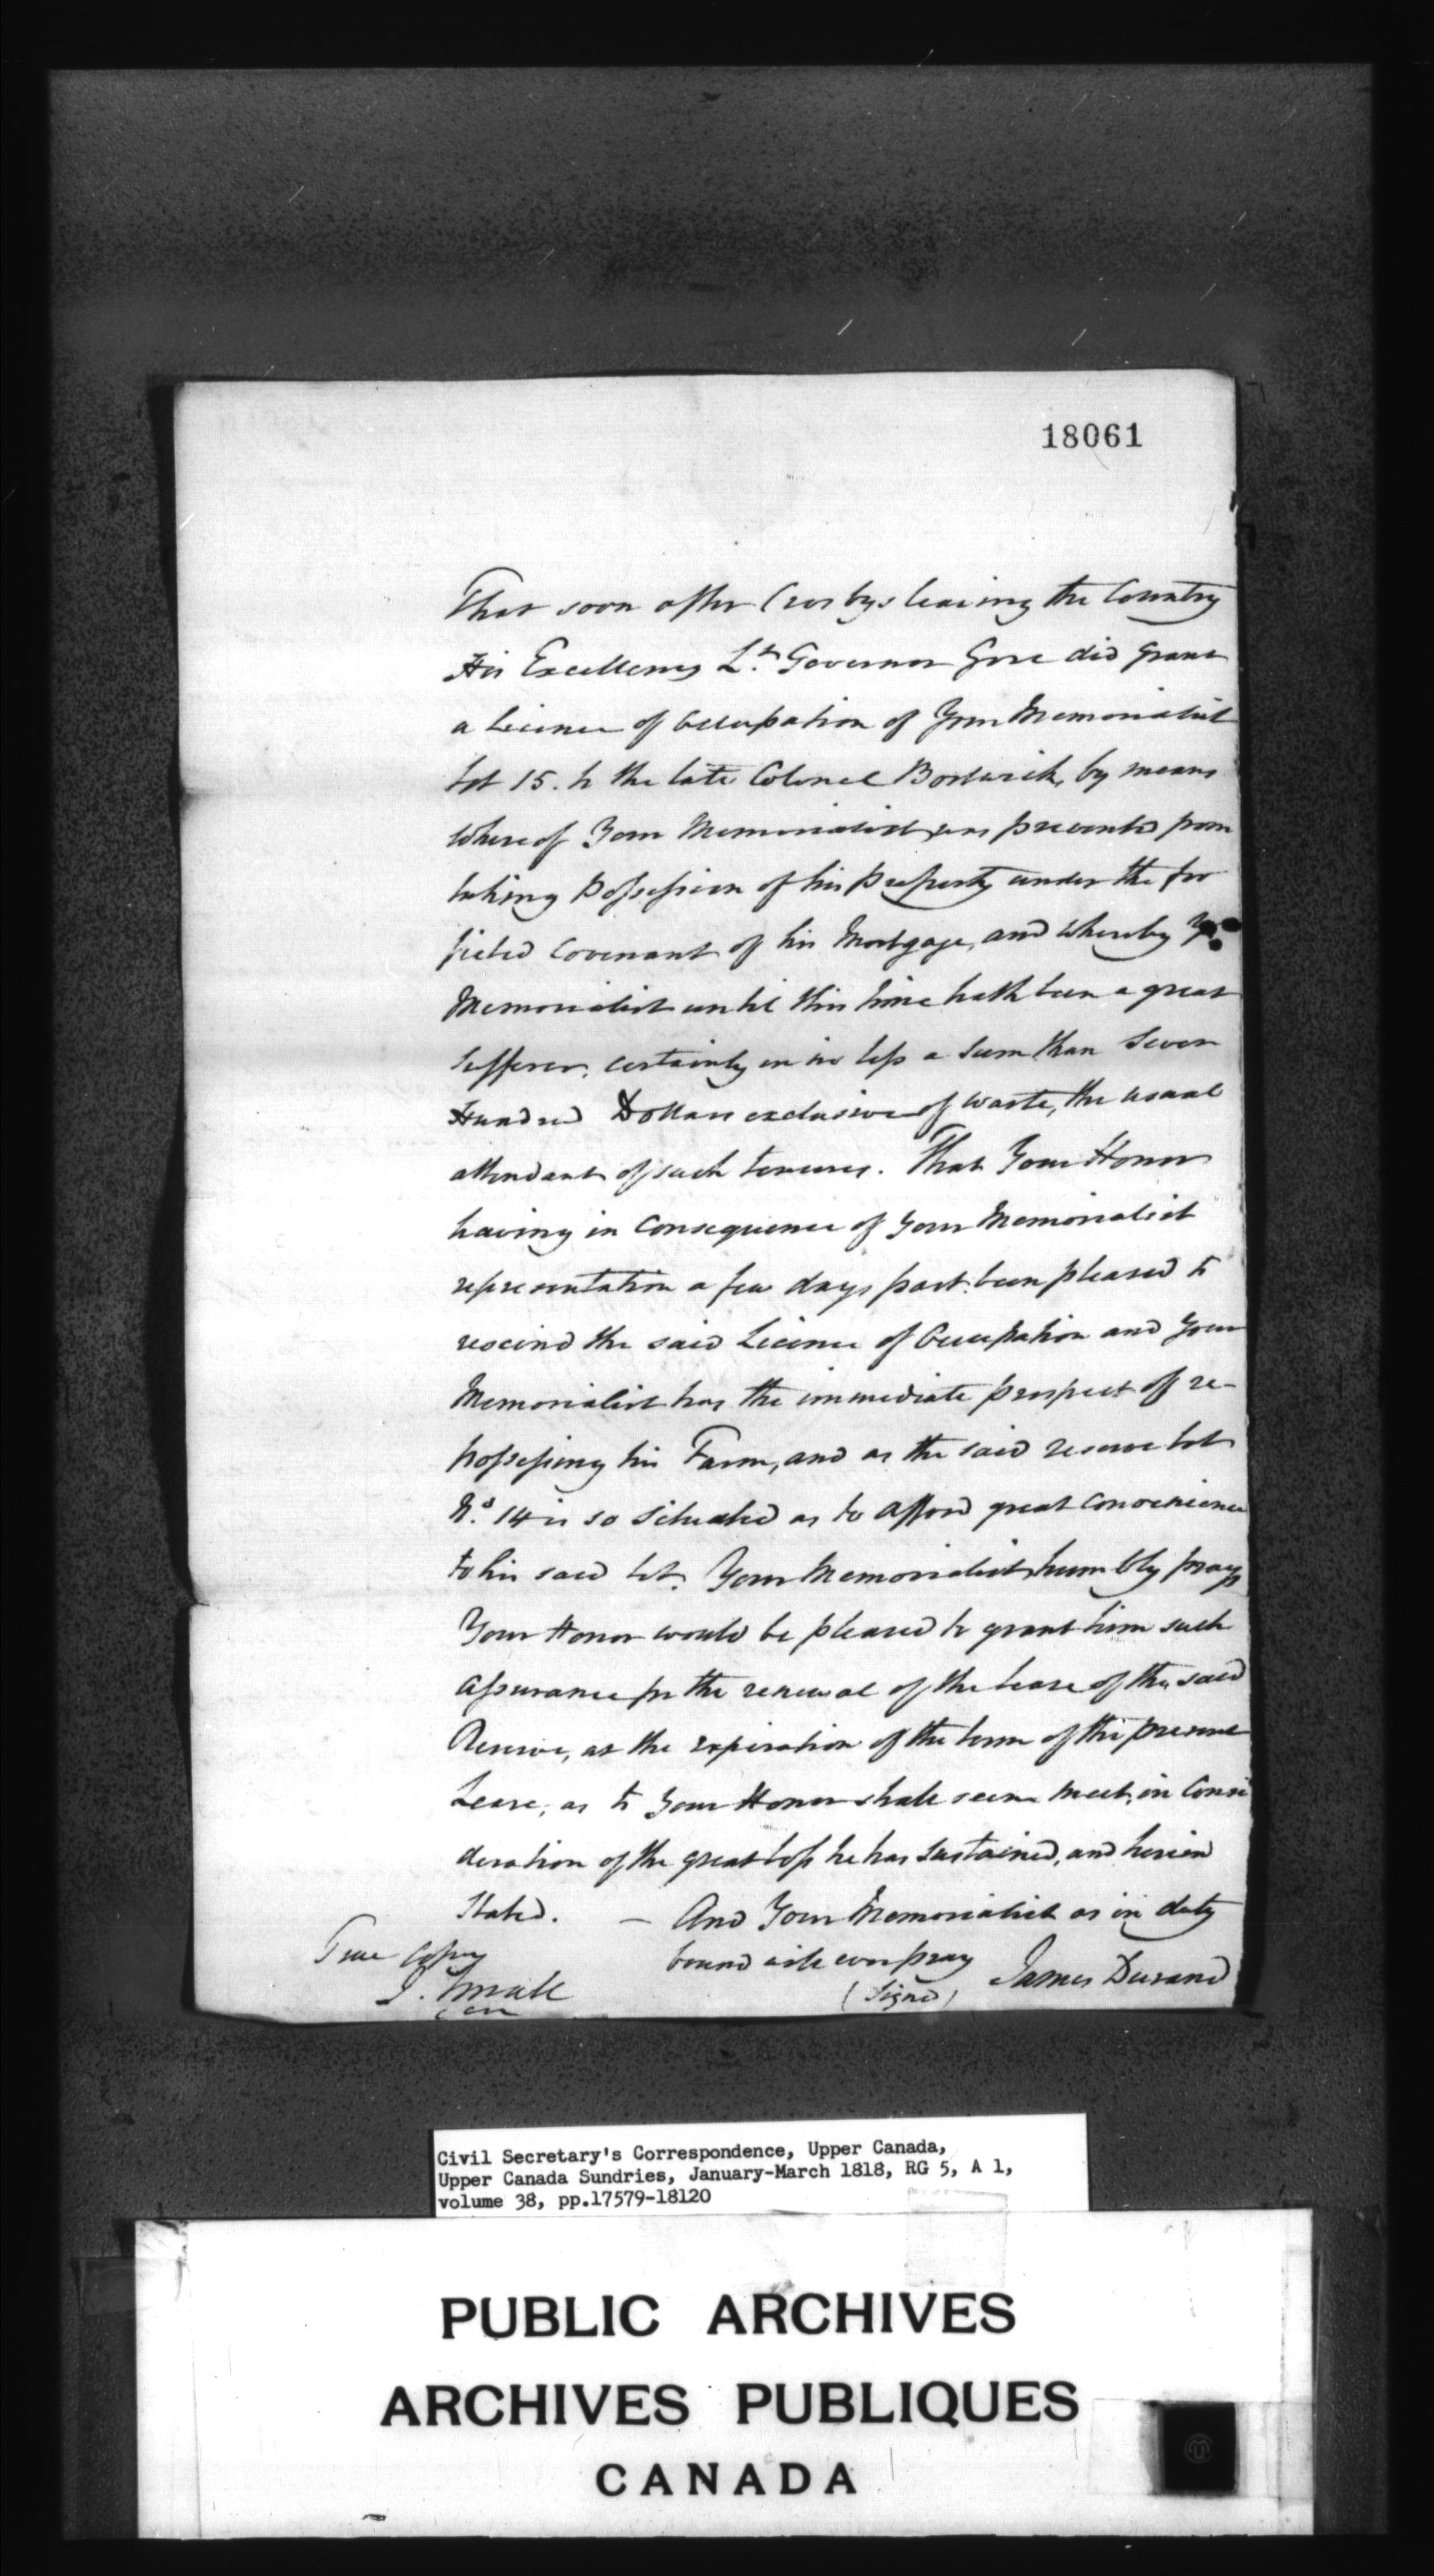 18061
That soon after Crosbys leaving the Country
His Excellency Lt. Governor Gore did grant
a Licence of Occupation of Your Memorialist
Lot 15. to the late Colonel Bostwick, by means
Whereof Your Memorialist was prevented from
taking Possession of his Property under the for
fieted Covenant of his Mortgage, and Whereby Yr
Memorialist until this time hath been a great
Sufferer, certainly in no less a Sum than Seven
Hundred Dollars exclusive of waste, the usual
attendant of such tenures. That Your Honor
having in Consequence of Your Memorialist
representation a few days past been pleased to
rescind the said Licence of Occupation and Your
Memorialist has the immediate prospect of re-
possessing his Farm, and as the said reserve Lot
No. 14 is so Situated as to afford great Convenience
to his said Lot. Your Memorialist humbly prays
Your Honor would be pleased to grant him such
Assurance for the renewal of the Lease of the said
Reserve, at the expiration of the term of the present
Lease, as to Your Honor shall seem meet, in Consi
deration of the great loss he has Sustained, and herein
Stated. — And Your Memorialist as in duty
bound will ever pray
(Signed) James Durand
True Copy
J. Small
Civil Secretary's Correspondence, Upper Canada,
Upper Canada Sundries, January-March 1818, RG 5, A 1,
volume 38, pp.17579-18120
PUBLIC ARCHIVES
ARCHIVES PUBLIQUES
CANADA